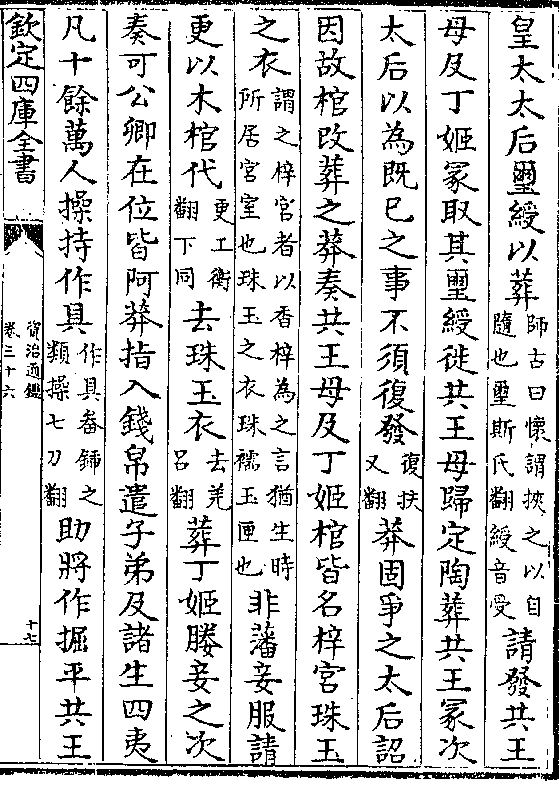 皇太太后璽綬以葬師古曰懷謂挾之以自隨也璽斯氏翻綬音受請發共王
母及丁姬冢取其璽綬徙共王母歸定陶葬共王冢次
太后以為既已之事不須復發復扶又翻莽固爭之太后詔
因故棺改葬之莽奏共王母及丁姬棺皆名梓宮珠玉
之衣謂之梓宮者以香梓為之言猶生時所居宮室也珠玉之衣珠襦玉匣也非藩妾服請
更以木棺代更工衡翻下同去珠玉衣去羌呂翻葬丁姬媵妾之次
奏可公卿在位皆阿莽指入錢帛遣子弟及諸生四夷
凡十餘萬人操持作具作具畚鍤之類操七刀翻助將作掘平共王
欽定四庫全書
資治通鑑
卷三十六
十七